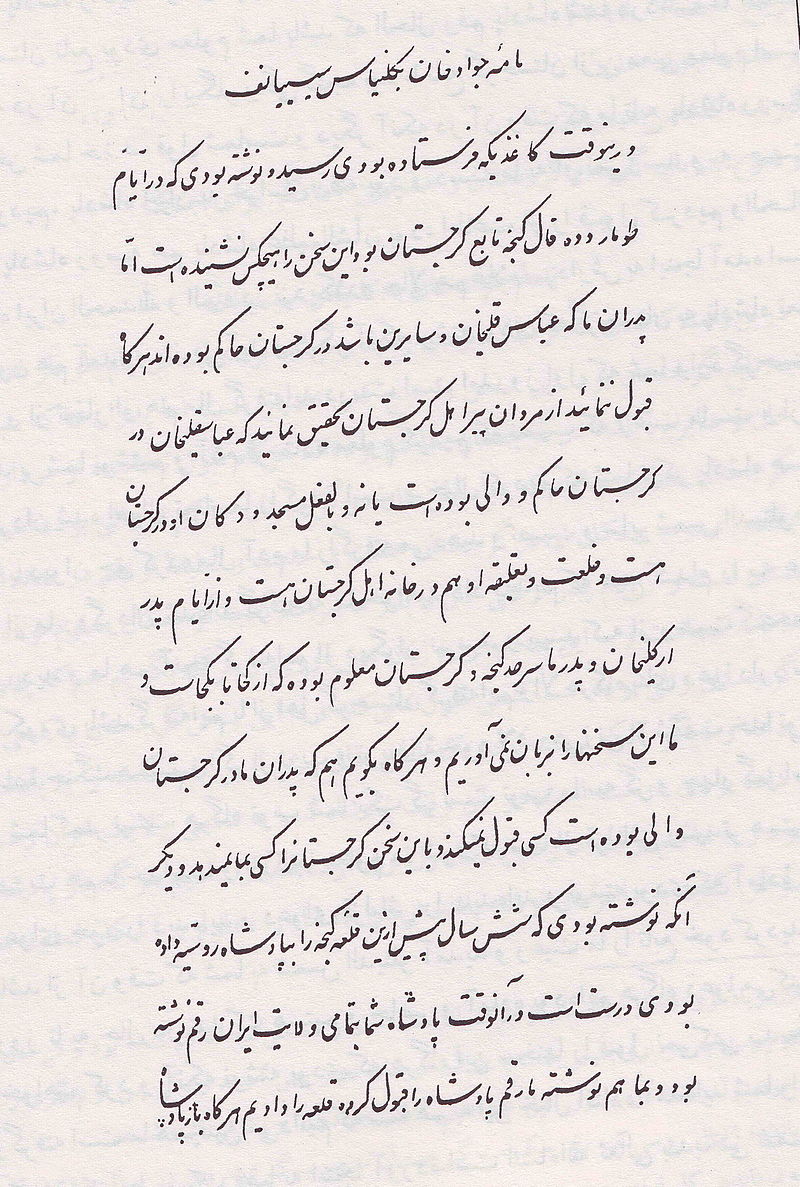 نامهٔ جواد خان بکنیاس سیسیانف
درینوقت کاغذیکه فرستاده بودی رسید و نوشته بودی که در ایام
طومار دده فال کنجه تابع کرجستان بود این سخن را هیچکس نشنیده است امّا
پدران ما که عباس قلیخان و سایرین باشد در کرجستان حاکم بوده اند هر کاه
قبول ننمائید از مردان پیر اهل کرجستان تحقیق نمایند که عباسقلیخان در
کرجستان حاکم و والی بوده است یا نه و بالفعل مسجد و دکان او در کرجستان
هست و خلعت و تعلیقه او هم در خانه اهل کرجستان هست و از ایام پدر
ارکلیخان و پدر ما سرحد کنجه و کرجستان معلوم بوده که از کجا تا بکجاست و
ما این سخنها را بزبان نمی آوریم و هر کاه بکویم هم که پدران ما در کرجستان
والی بوده است کسی قبول نمیکند و باین سخن کرجستانرا کسی بما نمیدهد و دیکر
آنکه نوشته بودی که شش سال پیش ازین قلعه کنجه را بپادشاه روسیه داده
بودی درست است در آنوقت پادشاه شما بتمامی ولایت ایران رقم نوشته
بود و بما هم نوشته ما رقم پادشاه را قبول کرده قلعه را دادیم هر کاه باز پادشاه